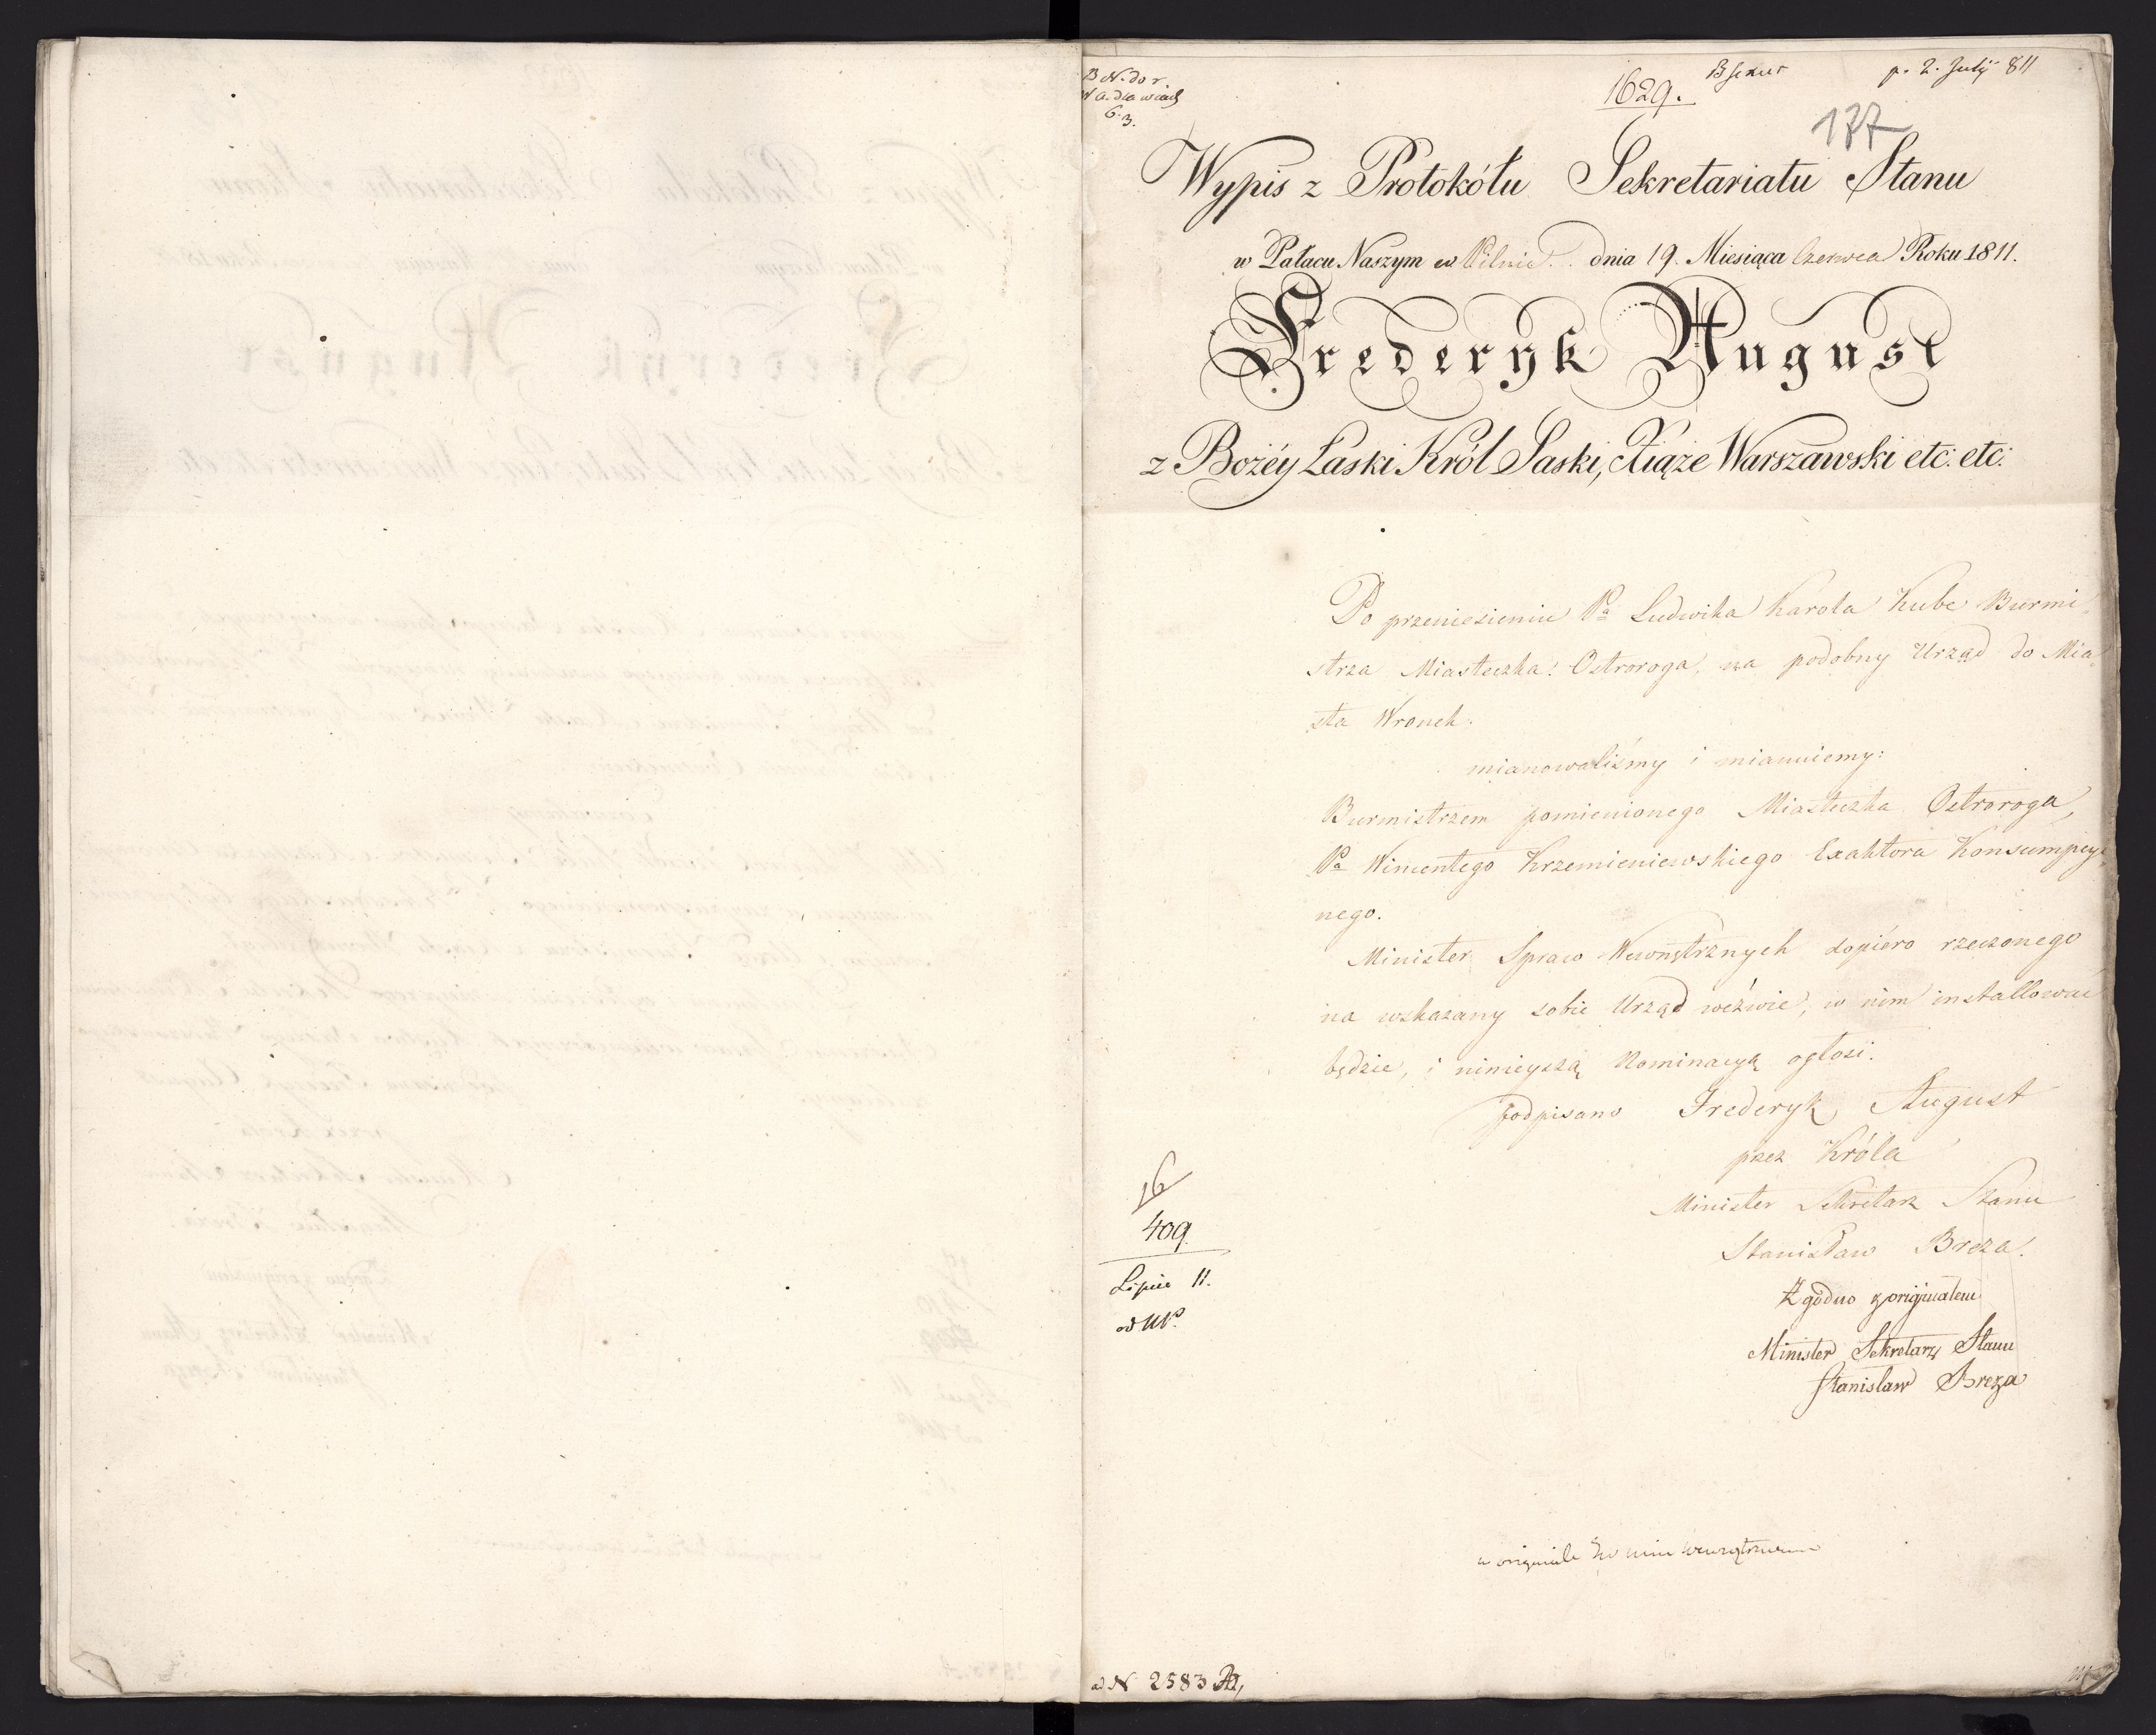 1629.
p. 2. July 811
177
Wypis z Protokółu Sekretariatu Stanu
w Pałacu Naszym w Pilnic. dnia 19. Miesiąca Czerwca Roku 1811.
Frederyk August
z Bożéy Łaski Król Saski, Xiąże Warszawski etc: etc:
Po przeniesieniu Pa Ludwika Karola Kube Burmi-
strza Miasteczka Ostroroga, na podobny Urząd do Mia-
sta Wronek.
mianowaliśmy i mianuiemy:
Burmistrzem pomienionego Miasteczka Ostroroga,
Pa Wincentego Krzemieniewskiego Exaktora Konsumpcyi-
nego.
Minister Spraw Wewnętrznych dopiéro rzeczonego
na wskazany sobie Urząd wézwie, w nim installować
będzie, i ninieyszą Nominacyą ogłosi.
podpisano Frederyk August
przez Króla
Minister Sekretarz Stanu
Stanisław Breza.
Zgodno z originałem
Minister Sekretarz Stanu
Stanisław Breza
16
409.
Lipiec 11.
w originale
ad N 2583